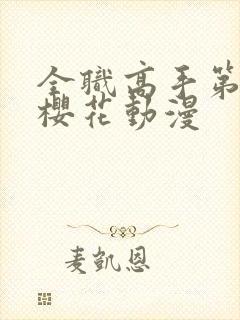 全職高手第
櫻花動漫
麦凱恩